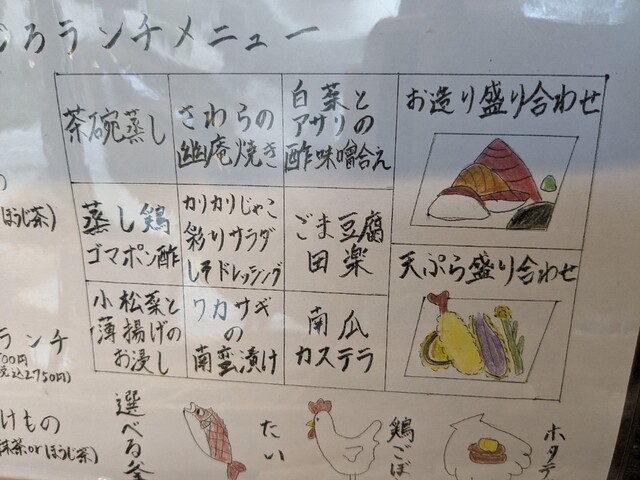 ろランチメニュー
茶碗蒸し
さわらの
幽庵焼き
白菜と
アサリの
酢味噌合え
お造り盛り合わせ
の
ほうじ茶)
蒸し鶏
ゴマポン酢
カリカリじゃこ
彩りサラダ
しそドレッシング
ごま豆腐
田楽
天ぷら盛り合わせ
小松菜と
薄揚げの
お浸し
ワカサギ
の
南蛮漬け
南瓜
カステラ
ランチ
00円
込2750円)
けもの
抹茶orほうじ茶)
選べる釜
たい
鶏ごぼ
ホタテ